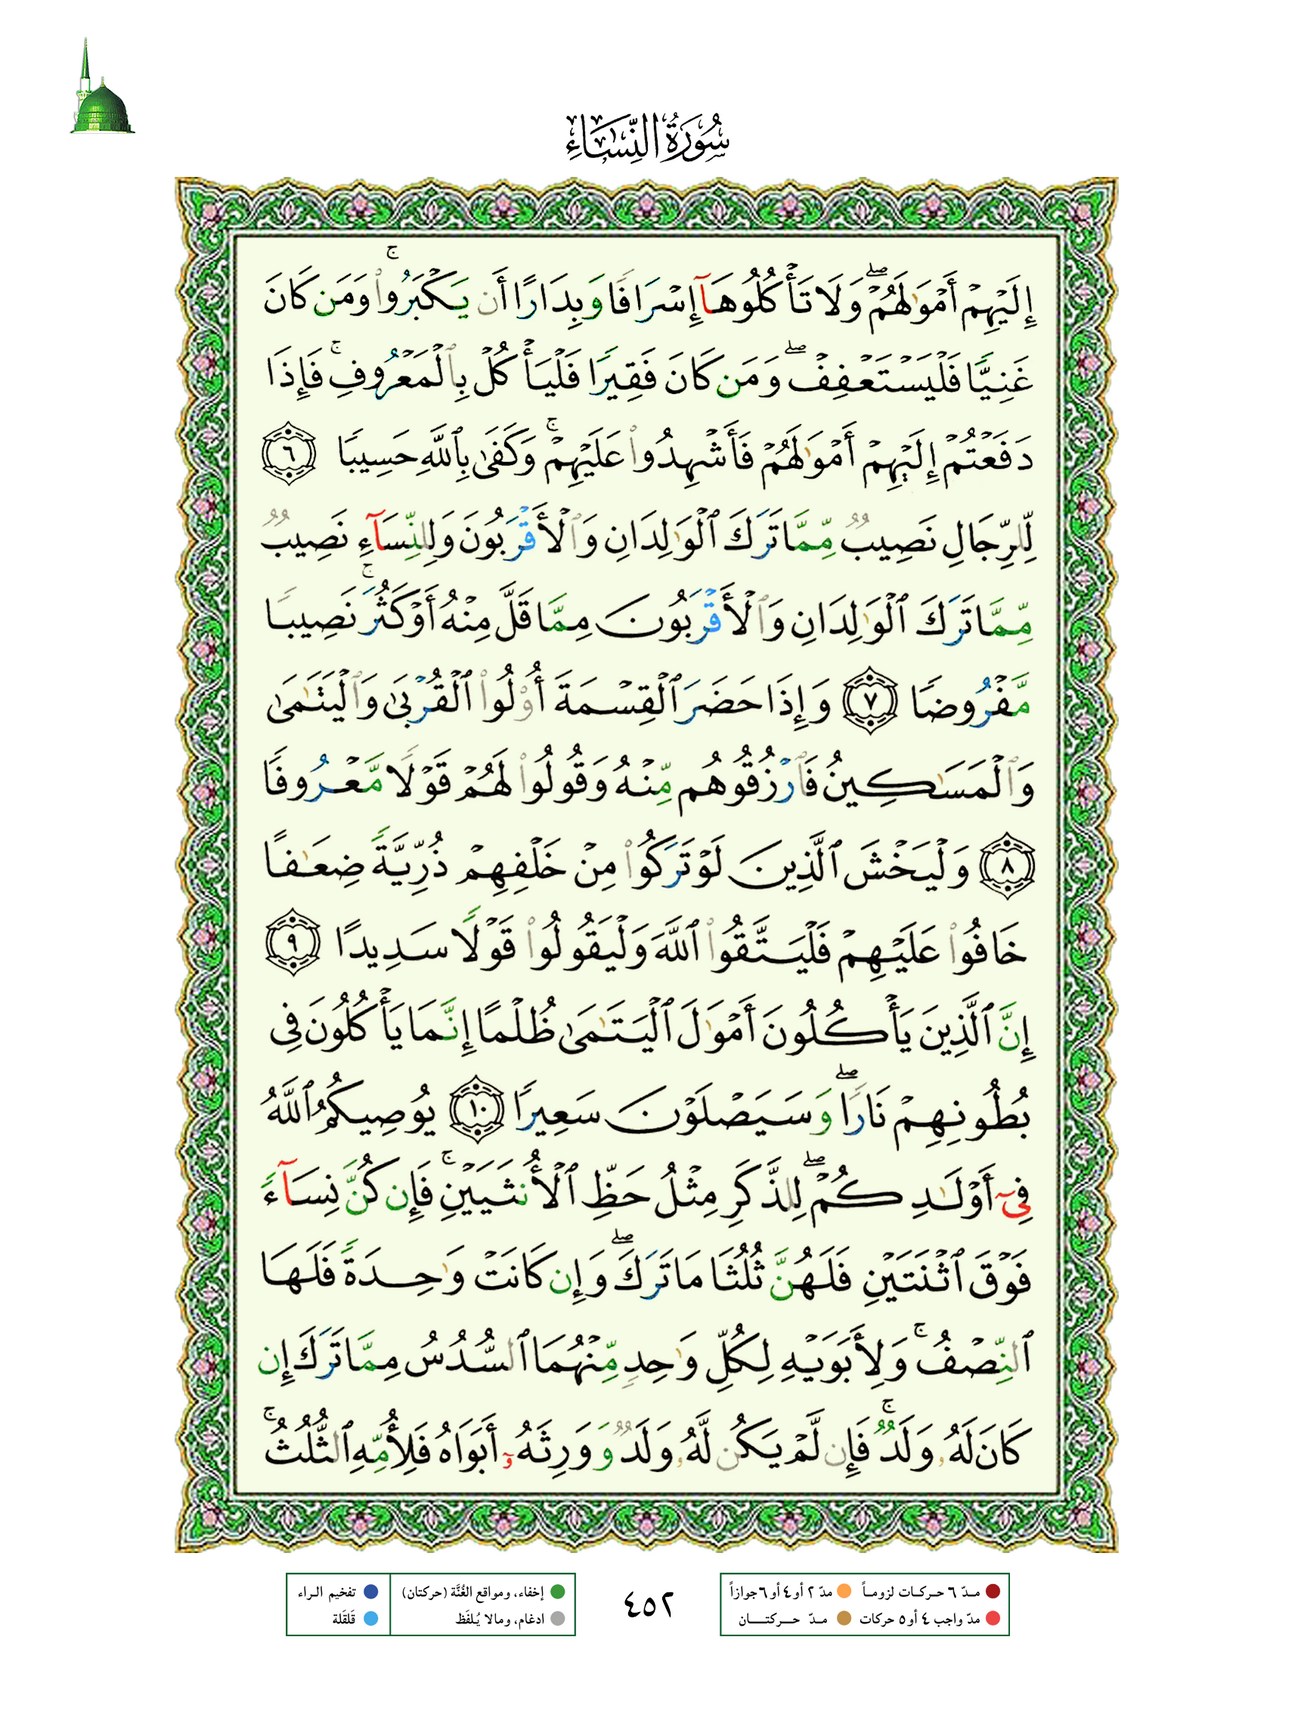 سُورَةُ النِّسَاءِ
إِلَيْهِمْ أَمْوَٰلَهُمْ ۖ وَلَا تَأْكُلُوهَآ إِسْرَافًا وَبِدَارًا أَن يَكْبَرُوا۟ ۚ وَمَن كَانَ
غَنِيًّا فَلْيَسْتَعْفِفْ ۖ وَمَن كَانَ فَقِيرًا فَلْيَأْكُلْ بِٱلْمَعْرُوفِ ۚ فَإِذَا
دَفَعْتُمْ إِلَيْهِمْ أَمْوَٰلَهُمْ فَأَشْهِدُوا۟ عَلَيْهِمْ ۚ وَكَفَىٰ بِٱللَّهِ حَسِيبًا ٦
لِّلرِّجَالِ نَصِيبٌ مِّمَّا تَرَكَ ٱلْوَٰلِدَانِ وَٱلْأَقْرَبُونَ وَلِلنِّسَآءِ نَصِيبٌ
مِّمَّا تَرَكَ ٱلْوَٰلِدَانِ وَٱلْأَقْرَبُونَ مِمَّا قَلَّ مِنْهُ أَوْ كَثُرَ ۚ نَصِيبًا
مَّفْرُوضًا ٧ وَإِذَا حَضَرَ ٱلْقِسْمَةَ أُو۟لُوا۟ ٱلْقُرْبَىٰ وَٱلْيَتَٰمَىٰ
وَٱلْمَسَٰكِينُ فَٱرْزُقُوهُم مِّنْهُ وَقُولُوا۟ لَهُمْ قَوْلًا مَّعْرُوفًا
٨ وَلْيَخْشَ ٱلَّذِينَ لَوْ تَرَكُوا۟ مِنْ خَلْفِهِمْ ذُرِّيَّةً ضِعَٰفًا
خَافُوا۟ عَلَيْهِمْ فَلْيَتَّقُوا۟ ٱللَّهَ وَلْيَقُولُوا۟ قَوْلًا سَدِيدًا ٩
إِنَّ ٱلَّذِينَ يَأْكُلُونَ أَمْوَٰلَ ٱلْيَتَٰمَىٰ ظُلْمًا إِنَّمَا يَأْكُلُونَ فِى
بُطُونِهِمْ نَارًا ۖ وَسَيَصْلَوْنَ سَعِيرًا ١٠ يُوصِيكُمُ ٱللَّهُ
فِىٓ أَوْلَٰدِكُمْ ۖ لِلذَّكَرِ مِثْلُ حَظِّ ٱلْأُنثَيَيْنِ ۚ فَإِن كُنَّ نِسَآءً
فَوْقَ ٱثْنَتَيْنِ فَلَهُنَّ ثُلُثَا مَا تَرَكَ ۖ وَإِن كَانَتْ وَٰحِدَةً فَلَهَا
ٱلنِّصْفُ ۚ وَلِأَبَوَيْهِ لِكُلِّ وَٰحِدٍ مِّنْهُمَا ٱلسُّدُسُ مِمَّا تَرَكَ إِن
كَانَ لَهُۥ وَلَدٌ ۚ فَإِن لَّمْ يَكُن لَّهُۥ وَلَدٌ وَوَرِثَهُۥٓ أَبَوَاهُ فَلِأُمِّهِ ٱلثُّلُثُ ۚ
مـدّ ٦ حـركـات لزومـاً مدّ ٢ أو ٤ أو ٦ جوازاً
مدّ واجب ٤ أو ٥ حركات مـدّ حـــركتــــان
٤٥٢
إخفاء، ومواقع الغُنَّة (حركتان) تفخيم الـراء
ادغام، ومالا يُـلفَظ قَلقَلة